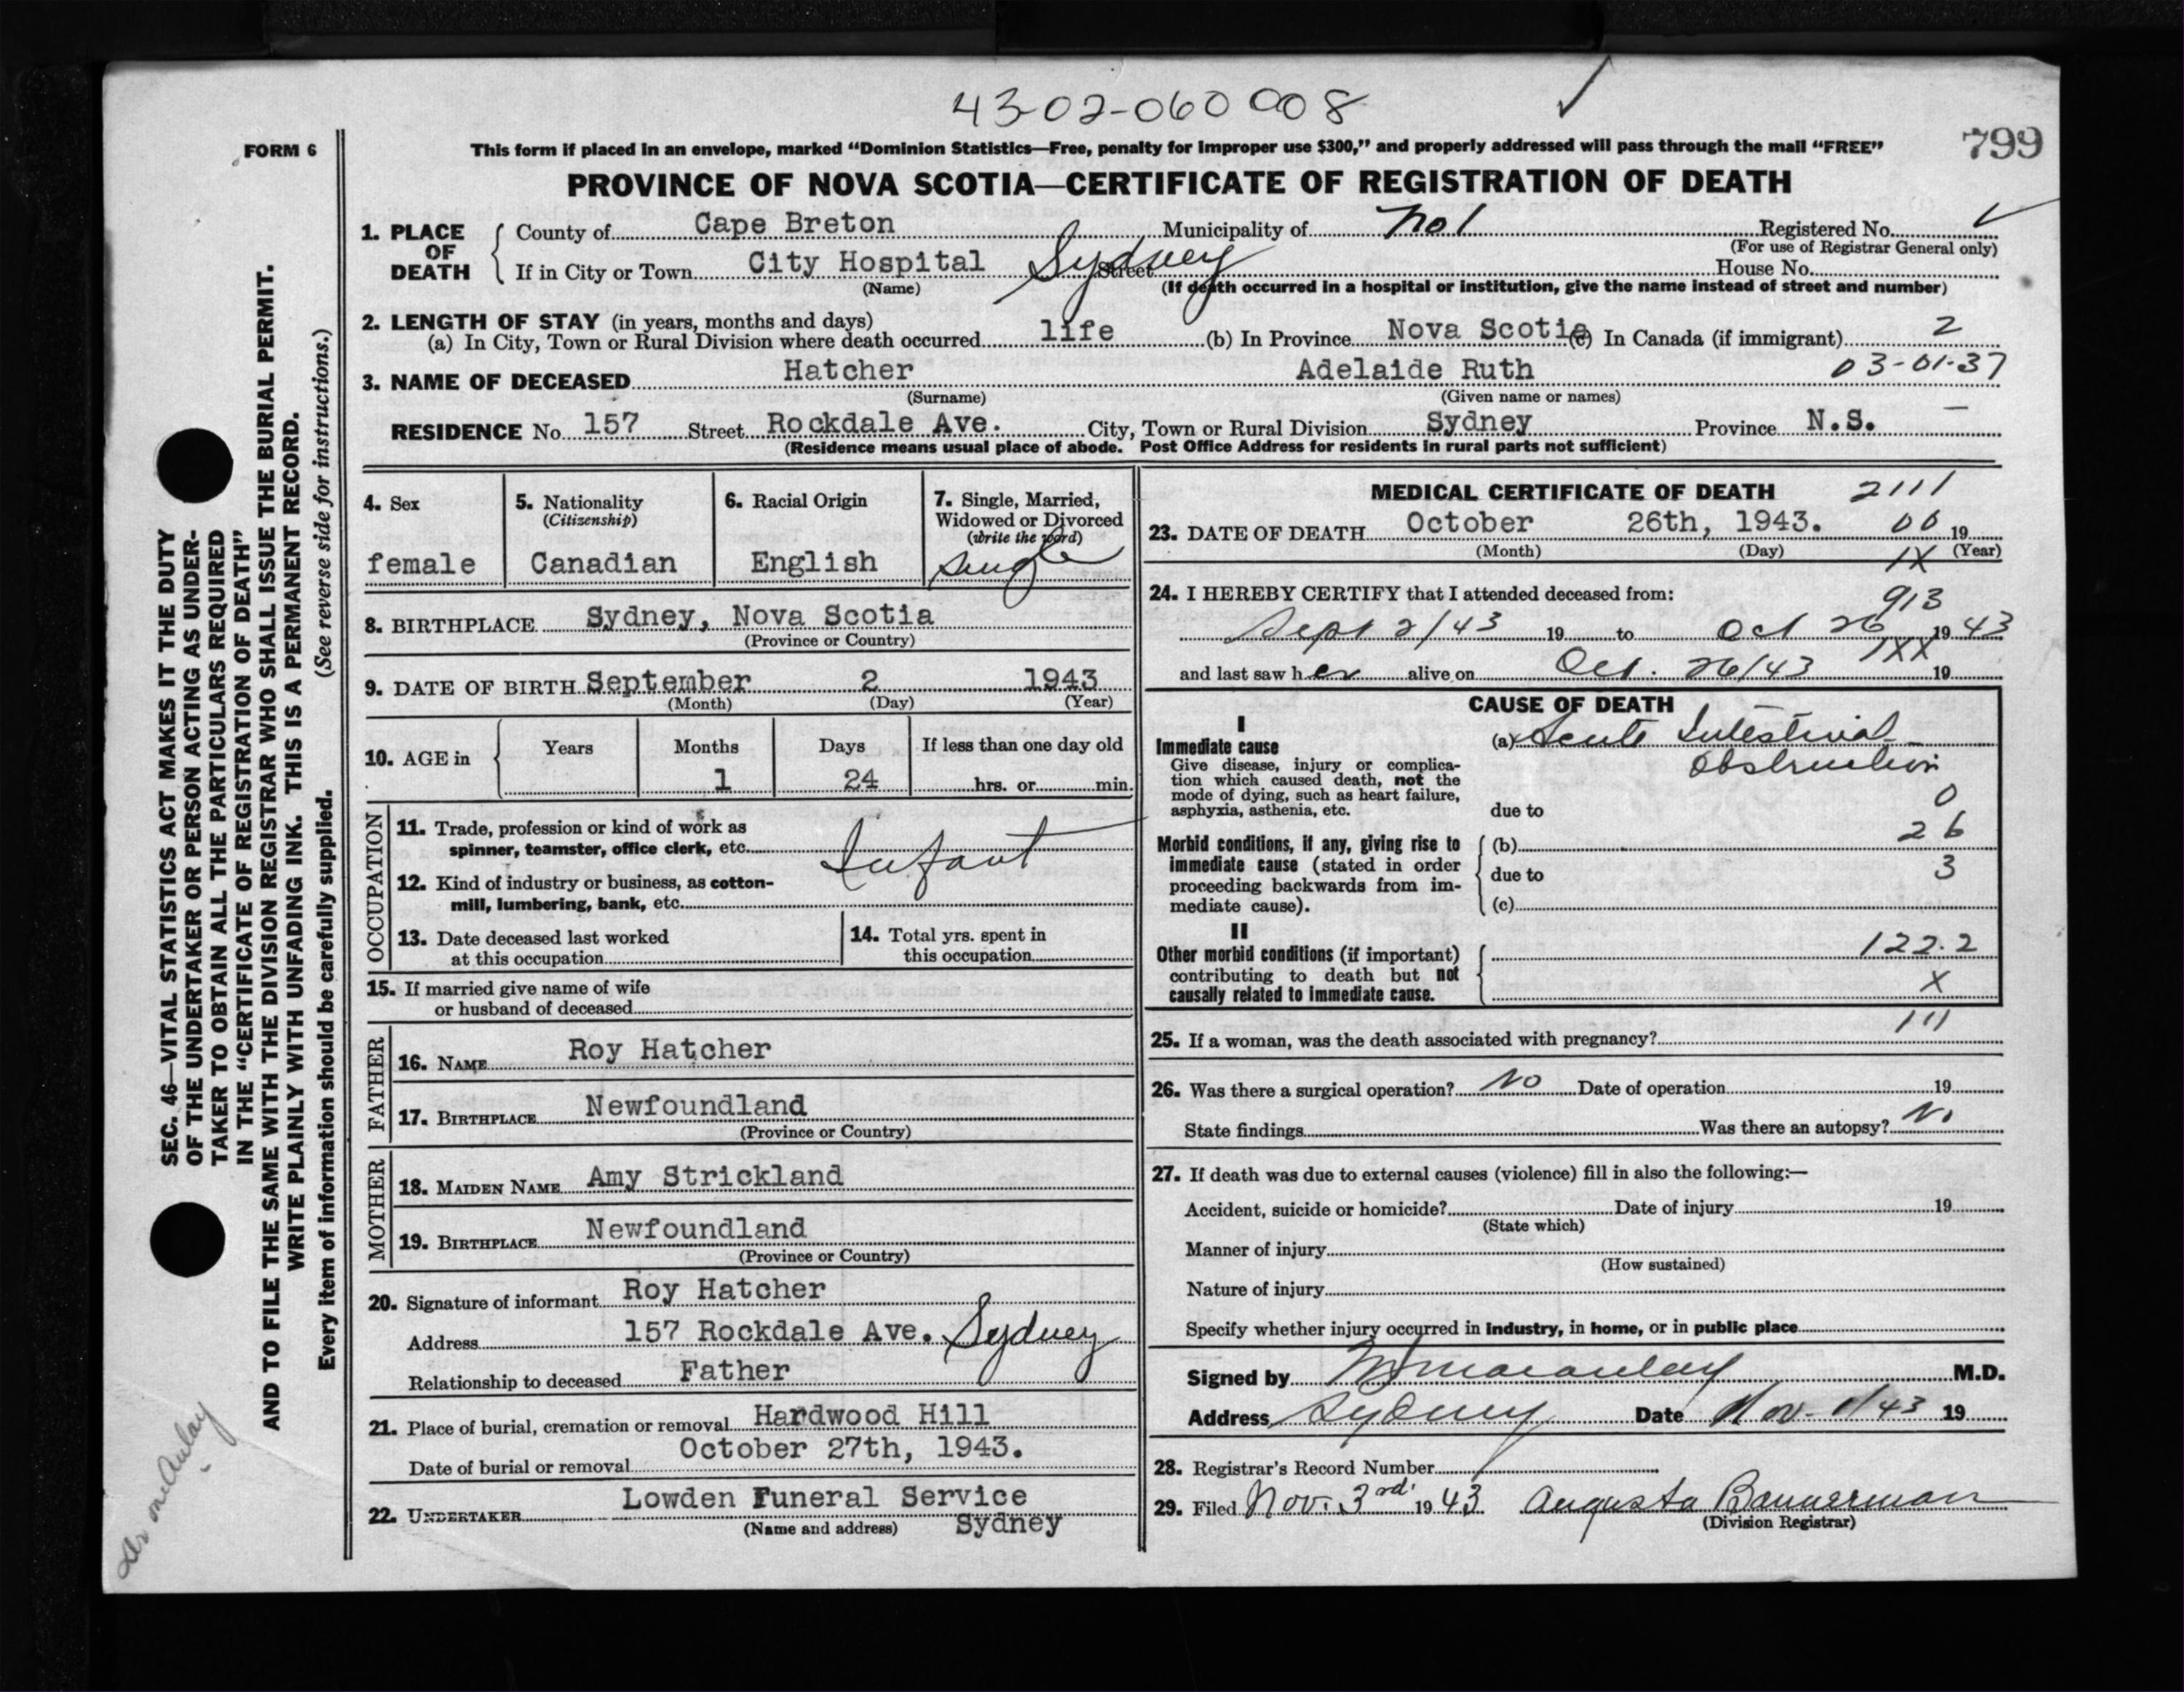 43-02-060 008
799
FORM 6
This form if placed in an envelope, marked “Dominion Statistics—Free, penalty for improper use $300,” and properly addressed will pass through the mail “FREE”
PROVINCE OF NOVA SCOTIA—CERTIFICATE OF REGISTRATION OF DEATH
1. PLACE OF DEATH
County of Cape Breton Municipality of No 1 Registered No.
(For use of Registrar General only)
If in City or Town City Hospital Sydney Street House No.
(Name) (If death occurred in a hospital or institution, give the name instead of street and number)
2. LENGTH OF STAY (in years, months and days)
(a) In City, Town or Rural Division where death occurred life (b) In Province Nova Scotia (c) In Canada (if immigrant) 2
3. NAME OF DECEASED Hatcher Adelaide Ruth 03-01-37
(Surname) (Given name or names)
RESIDENCE No. 157 Street Rockdale Ave. City, Town or Rural Division Sydney Province N.S.
(Residence means usual place of abode. Post Office Address for residents in rural parts not sufficient)
4. Sex
female
5. Nationality
(Citizenship)
Canadian
6. Racial Origin
English
7. Single, Married,
Widowed or Divorced
(write the word)
Single
8. BIRTHPLACE Sydney, Nova Scotia
(Province or Country)
9. DATE OF BIRTH September 2 1943
(Month) (Day) (Year)
10. AGE in
Years Months Days If less than one day old
1 24 hrs. or min.
OCCUPATION
11. Trade, profession or kind of work as
spinner, teamster, office clerk, etc. Infant
12. Kind of industry or business, as cotton-
mill, lumbering, bank, etc.
13. Date deceased last worked
at this occupation
14. Total yrs. spent in
this occupation
15. If married give name of wife
or husband of deceased
FATHER
16. NAME Roy Hatcher
17. BIRTHPLACE Newfoundland
(Province or Country)
MOTHER
18. MAIDEN NAME Amy Strickland
19. BIRTHPLACE Newfoundland
(Province or Country)
20. Signature of informant Roy Hatcher
Address 157 Rockdale Ave. Sydney
Relationship to deceased Father
21. Place of burial, cremation or removal Hardwood Hill
Date of burial or removal October 27th, 1943.
22. UNDERTAKER Lowden Funeral Service
(Name and address) Sydney
MEDICAL CERTIFICATE OF DEATH 2111
23. DATE OF DEATH October 26th, 1943. 06 19
(Month) (Day) (Year)
1X
24. I HEREBY CERTIFY that I attended deceased from:
913
Sept 2/43 19 to Oct 26 19 43
1XX
and last saw her alive on Oct. 26/43 19
CAUSE OF DEATH
I
Immediate cause
Give disease, injury or complica-
tion which caused death, not the
mode of dying, such as heart failure,
asphyxia, asthenia, etc.
(a) Acute Intestinal
Obstruction
0
due to
26
Morbid conditions, if any, giving rise to
immediate cause (stated in order
proceeding backwards from im-
mediate cause).
(b)
due to 3
(c)
II
Other morbid conditions (if important)
contributing to death but not
causally related to immediate cause.
122.2
X
111
25. If a woman, was the death associated with pregnancy?
26. Was there a surgical operation? No Date of operation 19
State findings Was there an autopsy? No
27. If death was due to external causes (violence) fill in also the following:—
Accident, suicide or homicide? Date of injury 19
(State which)
Manner of injury
(How sustained)
Nature of injury
Specify whether injury occurred in industry, in home, or in public place
Signed by Macaulay M.D.
Address Sydney Date Nov. 1/43 19
28. Registrar's Record Number
29. Filed Nov. 3rd. 1943 Augusta Bannerman
(Division Registrar)
SEC. 46—VITAL STATISTICS ACT MAKES IT THE DUTY
OF THE UNDERTAKER OR PERSON ACTING AS UNDER-
TAKER TO OBTAIN ALL THE PARTICULARS REQUIRED
IN THE “CERTIFICATE OF REGISTRATION OF DEATH”
AND TO FILE THE SAME WITH THE DIVISION REGISTRAR WHO SHALL ISSUE THE BURIAL PERMIT.
WRITE PLAINLY WITH UNFADING INK. THIS IS A PERMANENT RECORD.
Every item of information should be carefully supplied. (See reverse side for instructions.)
Dr MacAulay